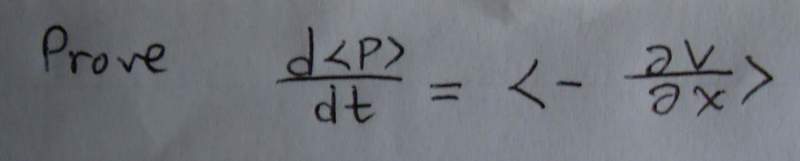 Prove d<P>/dt = <- ∂V/∂x>